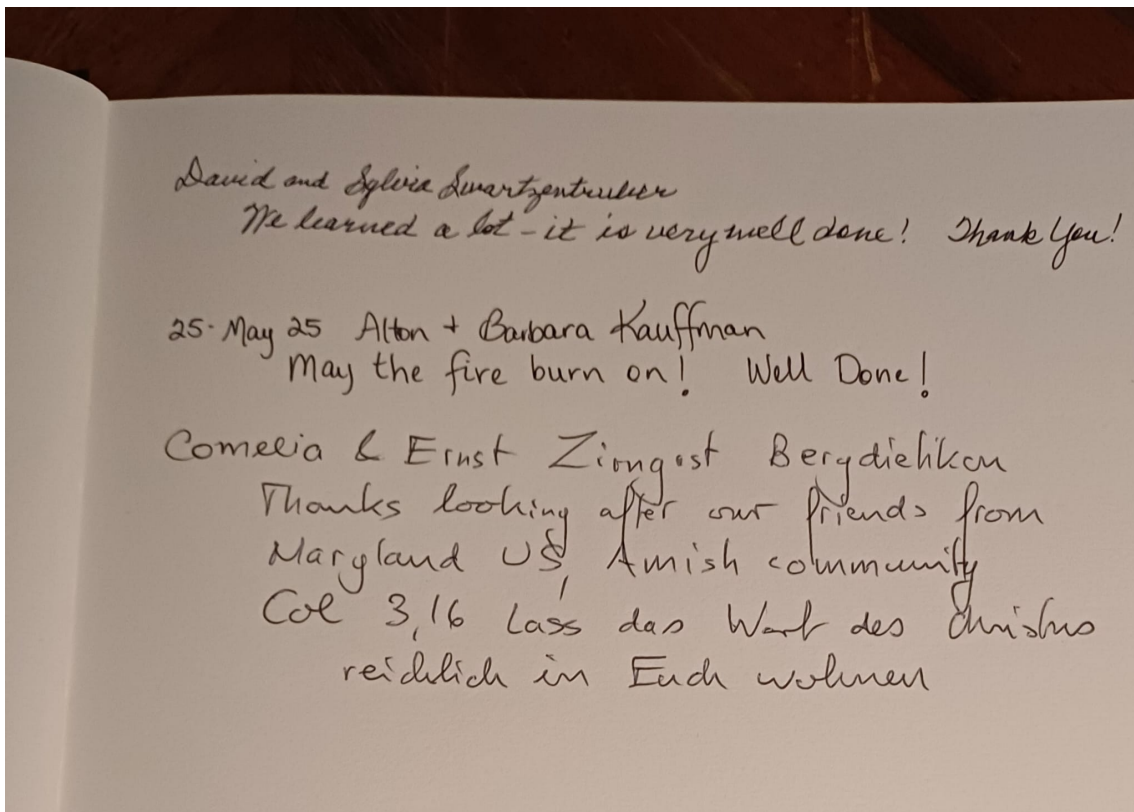 David and Sylvia Swartzentruber
We learned a lot - it is very well done! Thank You!
25. May 25 Alton + Barbara Kauffman
May the fire burn on! Well Done!
Cornelia & Ernst Bergdietikon
Thanks looking after our friends from
Maryland US, Amish community
Col 3,16 Lass das Wort des Christus
reichlich in Euch wohnen